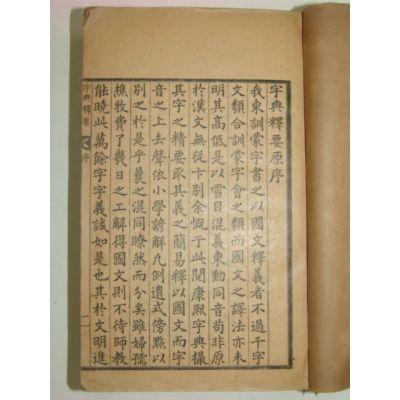 字典釋要原序
我東訓蒙字書之以國文釋義者不過千字
文類合訓蒙字會之類而國文之譯法亦未
明其高低是以雪目混義東動同音苟非原
於漢文無從卞別余慨于此閱康熙字典撮
其字之精要取其義之簡易釋以國文而字
音之上去聲依小學諺解凡例遺式傍點以
別之於是乎曩之混同瞭然而分矣雖婦孺
樵牧費了幾日之工解得國文則不待師教
能曉此萬餘字字義誠如是也其於文明進
字典釋要 序 一